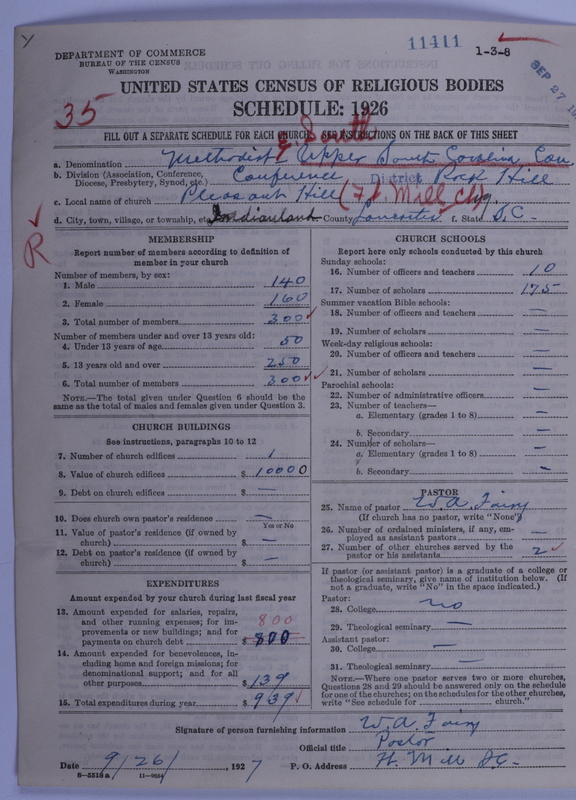 11411
1-3-8
DEPARTMENT OF COMMERCE
BUREAU OF THE CENSUS
WASHINGTON
SEP 27
UNITED STATES CENSUS OF RELIGIOUS BODIES
SCHEDULE: 1926
35
FILL OUT A SEPARATE SCHEDULE FOR EACH CHURCH. SEE INSTRUCTIONS ON THE BACK OF THIS SHEET
E. South
a. Denomination Methodist Upper South Carolina Con
b. Division (Association, Conference, Diocese, Presbytery, Synod, etc.) Conference District Rock Hill
c. Local name of church Pleasant Hill (Ft. Mill Chg.
d. City, town, village, or township, etc. Indianland County Lancaster f. State S.C.
R
MEMBERSHIP
Report number of members according to definition of
member in your church
Number of members, by sex:
1. Male 140
2. Female 160
3. Total number of members 300
Number of members under and over 13 years old:
4. Under 13 years of age 50
5. 13 years old and over 250
6. Total number of members 300
NOTE.—The total given under Question 6 should be
same as the total of males and females given under Question 3.
CHURCH BUILDINGS
See instructions, paragraphs 10 to 12
7. Number of church edifices 1
8. Value of church edifices $ 10000
9. Debt on church edifices $ —
10. Does church own pastor's residence —
Yes or No
11. Value of pastor's residence (if owned by
church) $ —
12. Debt on pastor's residence (if owned by
church) $ —
EXPENDITURES
Amount expended by your church during last fiscal year
13. Amount expended for salaries, repairs,
and other running expenses; for im- 800
provements or new buildings; and for
payments on church debt $ 800
14. Amount expended for benevolences, in-
cluding home and foreign missions; for
denominational support; and for all
other purposes $ 139
15. Total expenditures during year $ 939
CHURCH SCHOOLS
Report here only schools conducted by this church
Sunday schools:
16. Number of officers and teachers 10
17. Number of scholars 175
Summer vacation Bible schools:
18. Number of officers and teachers —
19. Number of scholars —
Week-day religious schools:
20. Number of officers and teachers —
21. Number of scholars —
Parochial schools:
22. Number of administrative officers —
23. Number of teachers—
a. Elementary (grades 1 to 8) —
b. Secondary —
24. Number of scholars—
a. Elementary (grades 1 to 8) —
b. Secondary —
PASTOR
25. Name of pastor W. A. Fairy
(If church has no pastor, write "None")
26. Number of ordained ministers, if any, em-
ployed as assistant pastors —
27. Number of other churches served by the
pastor or his assistants 2
If pastor (or assistant pastor) is a graduate of a college or
theological seminary, give name of institution below. (If
not a graduate, write "No" in the space indicated.)
Pastor:
28. College no
29. Theological seminary —
Assistant pastor:
30. College —
31. Theological seminary —
NOTE.—Where one pastor serves two or more churches,
Questions 28 and 29 should be answered only on the schedule
for one of the churches; on the schedules for the other churches,
write "See schedule for church."
Signature of person furnishing information W. A. Fairy
Official title Pastor
Date 9/26/, 1927 P. O. Address Ft. Mill S.C.
8-5518a 11-9054